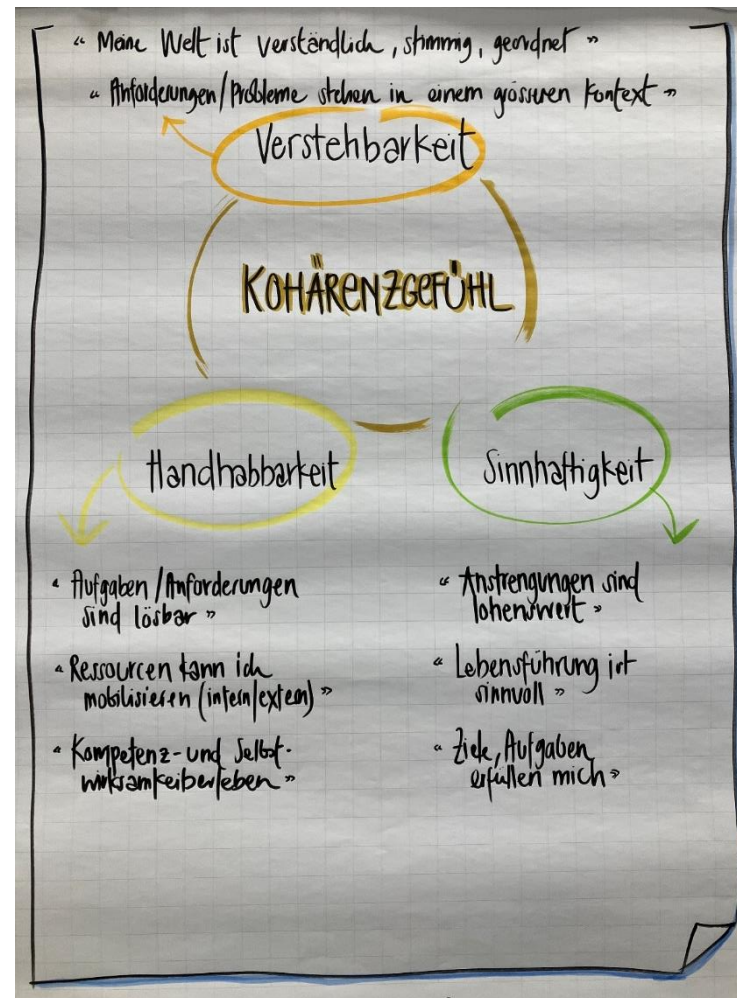 « Meine Welt ist verständlich, stimmig, geordnet »
« Anforderungen/Probleme stehen in einem grösseren Kontext »
Verstehbarkeit
KOHÄRENZGEFÜHL
Handhabbarkeit
Sinnhaftigkeit
« Aufgaben/Anforderungen
sind lösbar »
« Ressourcen kann ich
mobilisieren (intern/extern) »
« Kompetenz- und Selbst-
wirksamkeiberleben »
« Anstrengungen sind
lohenswert »
« Lebensführung ist
sinnvoll »
« Ziele, Aufgaben
erfüllen mich »